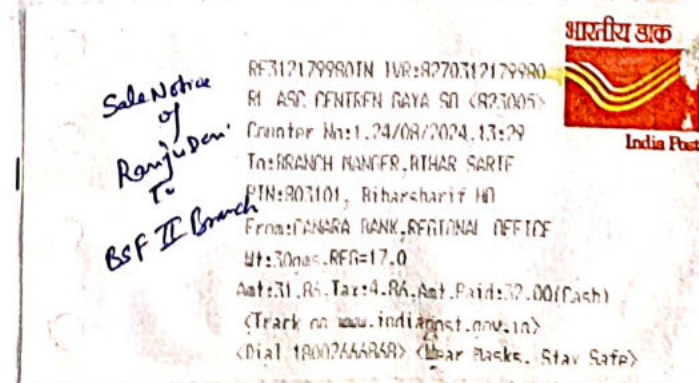 भारतीय डाक
India Post
Sale Notice
of
Ranju Devi
To
BSF II Branch
RF312179980IN IVR:8270312179980
RL ASC CENTREN GAYA SO <823005>
Counter No:1,24/08/2024,13:29
To:BRANCH MANGER,BIHAR SARIF
PIN:803101, Biharsharif HO
From:CANARA BANK,REGIONAL OFFICE
Wt:30gms,REG=17.0
Amt:31.86,Tax:4.86,Amt.Paid:32.00(Cash)
<Track on www.indiapost.gov.in>
<Dial 18002666868> <Wear Masks, Stay Safe>